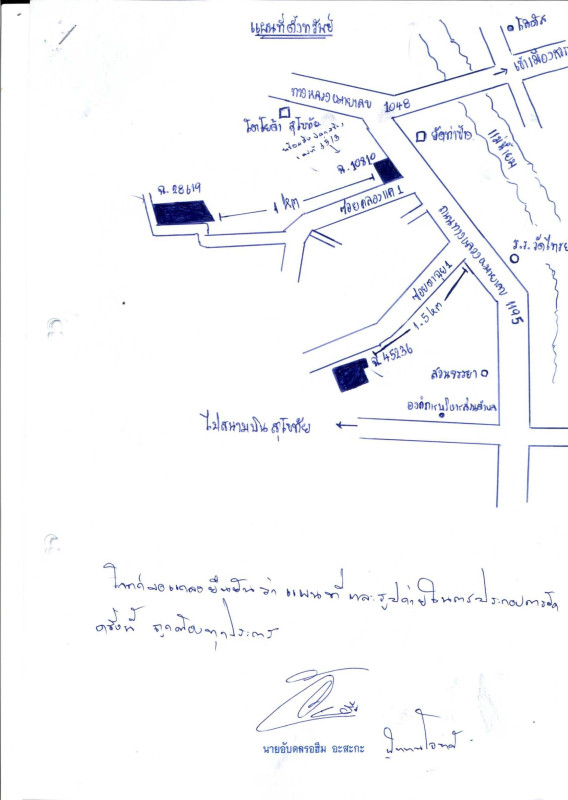 แผนที่ตั้งทรัพย์
โลตัส
ทางหลวงหมายเลข 1048
โตโยต้า สุโขทัย
วัดท่าเกษม
แม่น้ำยม
ฉ. 10810
ฉ. 28619
1 km
ซอยคลองแค 1
ถนนทางหลวงหมายเลข 1195
ร.ร. วัดไทรย
1.5 km
ฉ. 45236
สวนวรรยา
องค์การบริหารส่วนตำบล
ไปสนามบินสุโขทัย
โจทก์ขอแถลงยืนยันว่า แผนที่ และรูปถ่ายในการประกอบการยึด
ครั้งนี้ ถูกต้องทุกประการ
นายอับดลรอฮีม อะสะกะ ผู้แทนโจทก์